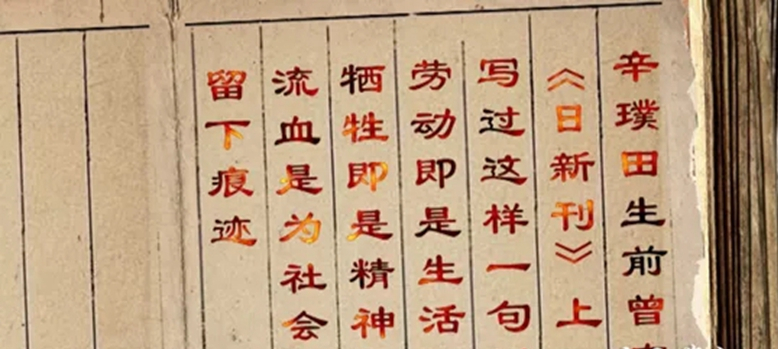 辛璞田生前曾
《日新刊》上
写过这样一句
劳动即是生活
牺牲即是精神
流血是为社会
留下痕迹